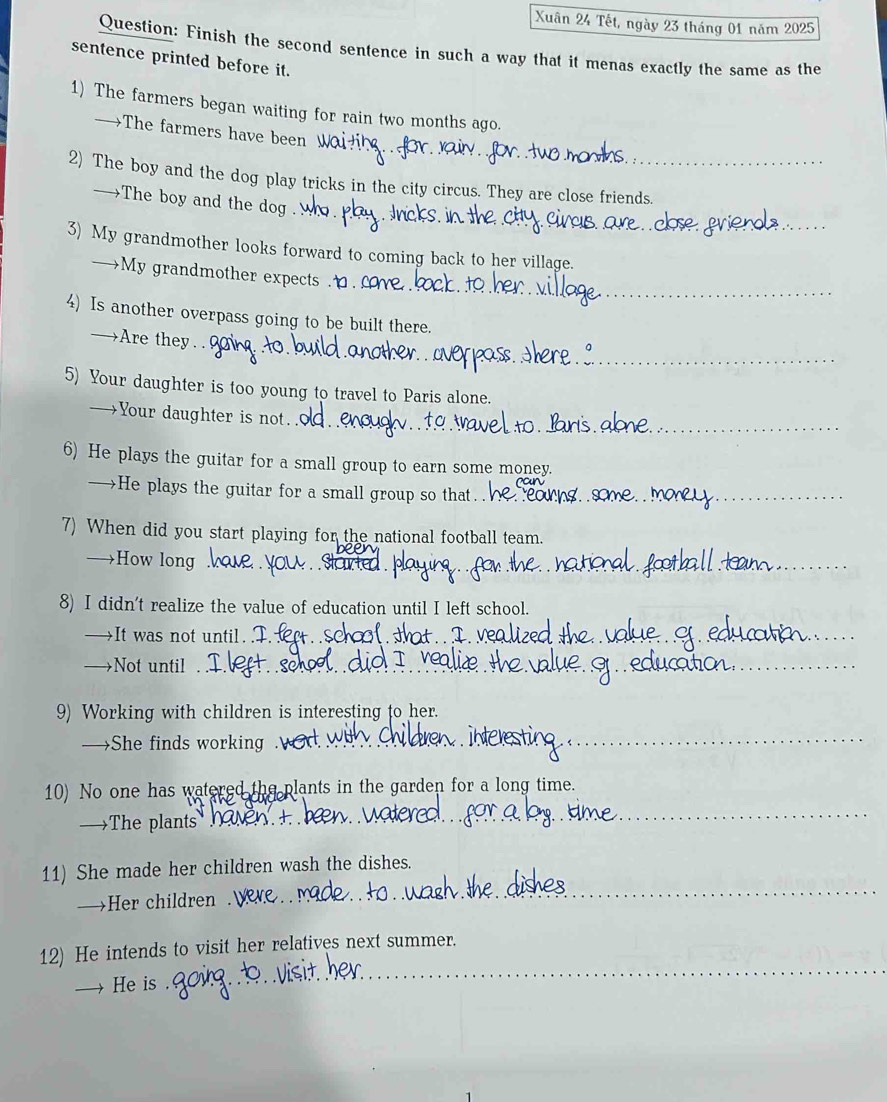 Xuân 24 Tết, ngày 23 tháng 01 năm 2025
Question: Finish the second sentence in such a way that it menas exactly the same as the
sentence printed before it.
1) The farmers began waiting for rain two months ago.
→The farmers have been waiting for rain for two months.
2) The boy and the dog play tricks in the city circus. They are close friends.
→The boy and the dog who play tricks in the city circus are close friends
3) My grandmother looks forward to coming back to her village.
→My grandmother expects to come back to her village
4) Is another overpass going to be built there.
→Are they going to build another overpass there ?
5) Your daughter is too young to travel to Paris alone.
→Your daughter is not old enough to travel to Paris alone
6) He plays the guitar for a small group to earn some money.
can
→He plays the guitar for a small group so that he earns some money
7) When did you start playing for the national football team.
been
→How long have you started playing for the national football team
8) I didn't realize the value of education until I left school.
→It was not until I left school that I realized the value of education
→Not until I left school did I realize the value of education
9) Working with children is interesting to her.
→She finds working with children interesting
10) No one has watered the plants in the garden for a long time.
in the garden
→The plants haven't been watered for a long time
11) She made her children wash the dishes.
→Her children were made to wash the dishes
12) He intends to visit her relatives next summer.
→ He is going to visit her
1